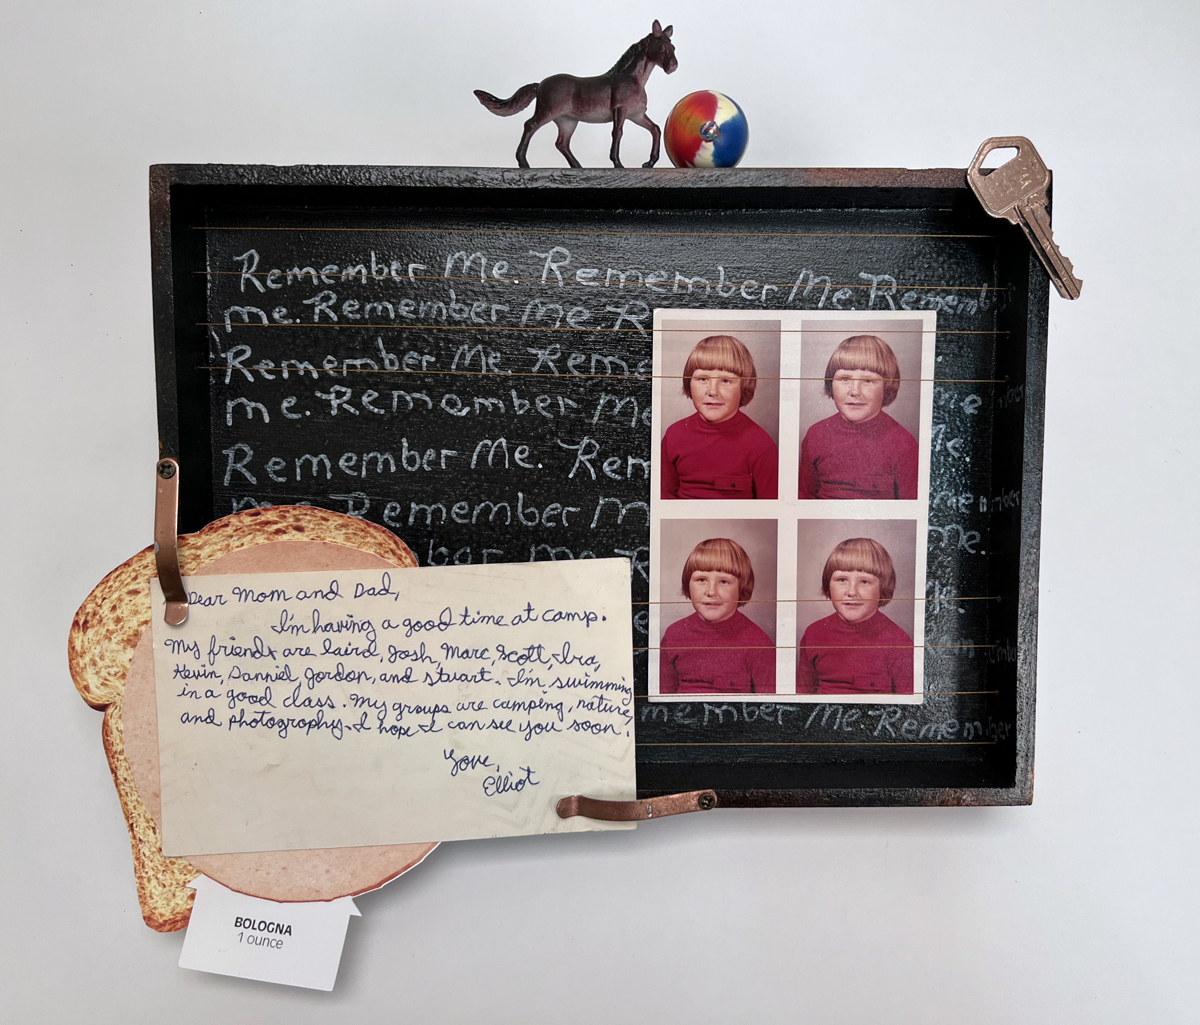 Remember Me. Remember Me. Rememb
me. Remember Me. R
Remember Me. Reme
me. Remember Me
me
Remember Me. Rem
Me.
Remember M
member
ber me. R
me.
Me.
member Me. Remember
Dear Mom and Dad,
I'm having a good time at camp.
My friends are Laird, Josh, Marc, Scott, Ira,
Kevin, Danniel, Jordon, and Stuart. I'm swimming
in a good class. My groups are camping, nature,
and photography. I hope I can see you soon.
Love,
Elliot
BOLOGNA
1 ounce